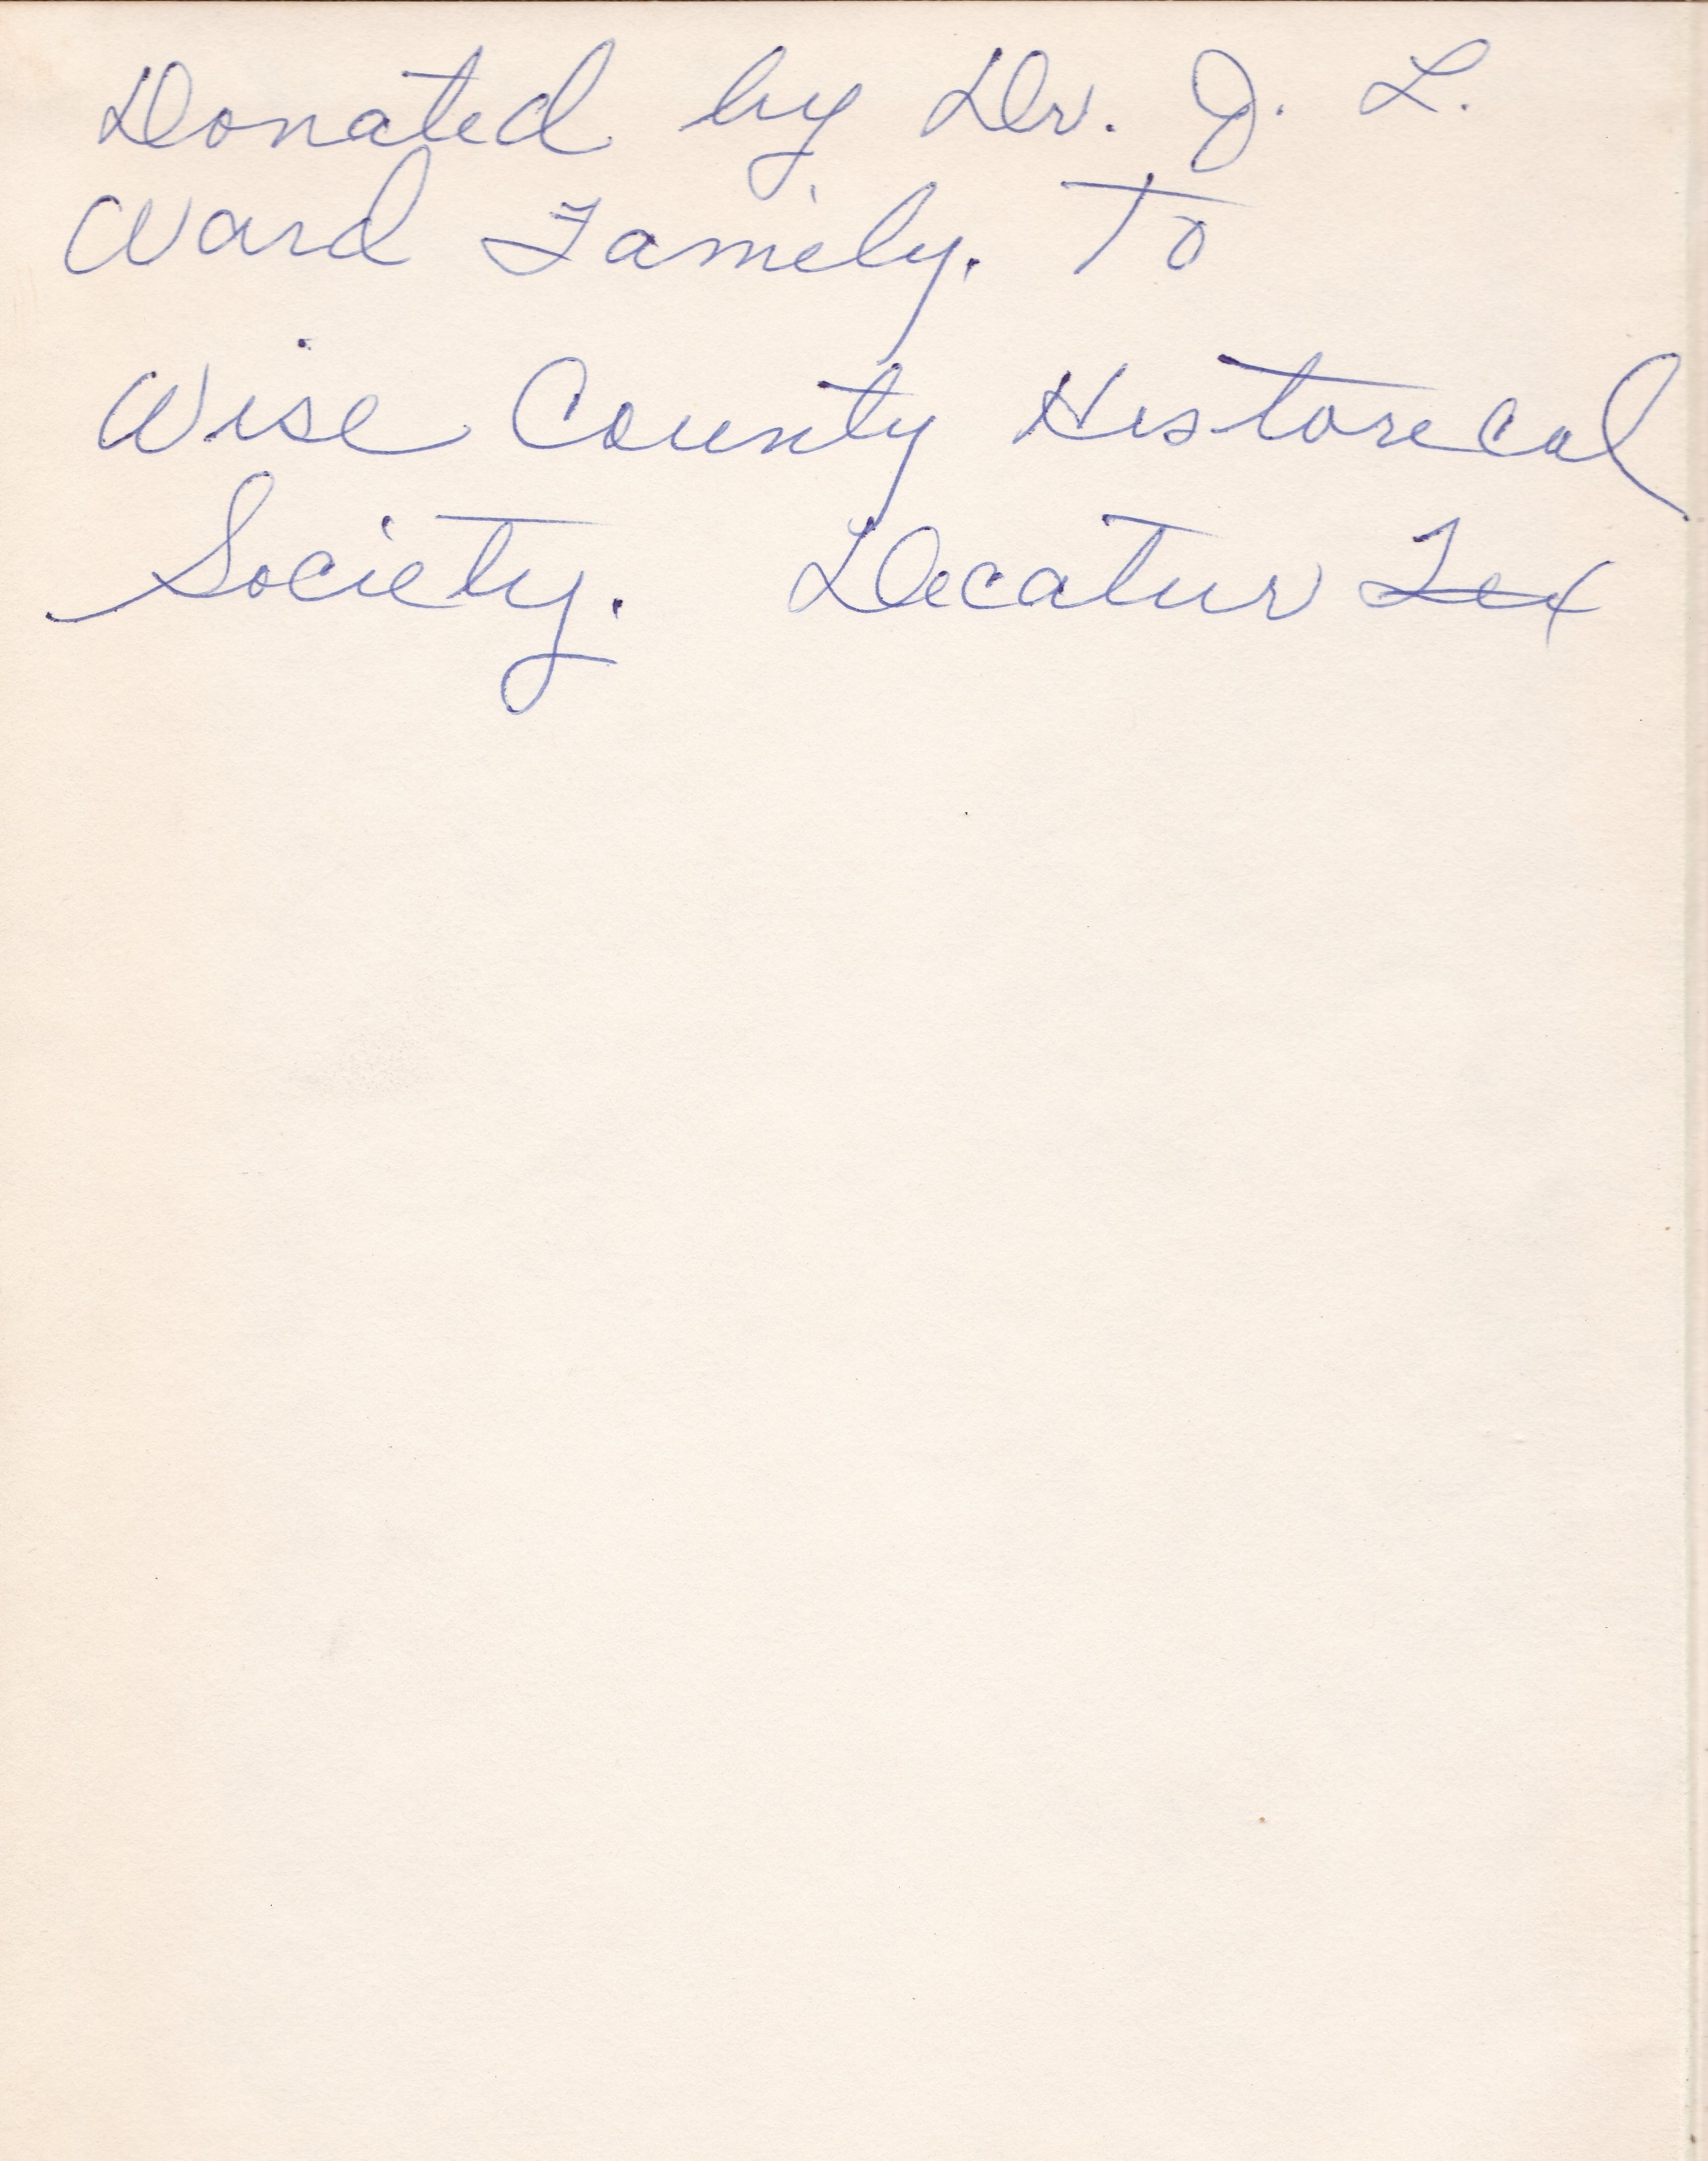 Donated by Dr. J. L.
Ward Family. To
Wise County Historical
Society. Decatur Tex